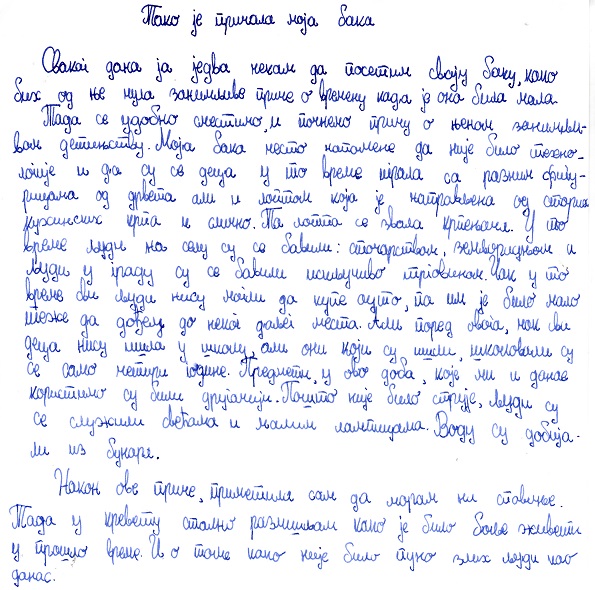 Тако је причала моја бака
Сваког дана ја једва чекам да посетим своју баку, како
бих од ње чула занимљиве приче о времену када је она била мала.
Тада се удобно сместимо, и почнемо причу о њеном занимљи-
вом детињству. Моја бака често напомене да није било техно-
логије и да су се деца у то време играла са разним фигу-
рицама од дрвета али и лоптом која је направљена од старих
кухињских крпа и слично. Та лопта се звала крпењача. У то
време људи на селу су се бавили: сточарством, земљорадњом а
људи у граду су се бавили искључиво трговином. Чак у то
време сви људи нису могли да купе ауто, па им је било мало
теже да дођу до неког даљег места. Али поред овога, чак сви
деца нису ишла у школу, али они који су ишли, школовали су
се само четири године. Предмети, у ово доба, које ми и данас
користимо су били другачији. Пошто није било струје, људи су
се служили свећама и малим лампицама. Воду су добија-
ли из бунара.
Након ове приче, приметила сам да морам ни спавање.
Тада у кревету стално размишљам како је било боље живети
у прошло време. И о томе како није било пуно злих људи као
данас.